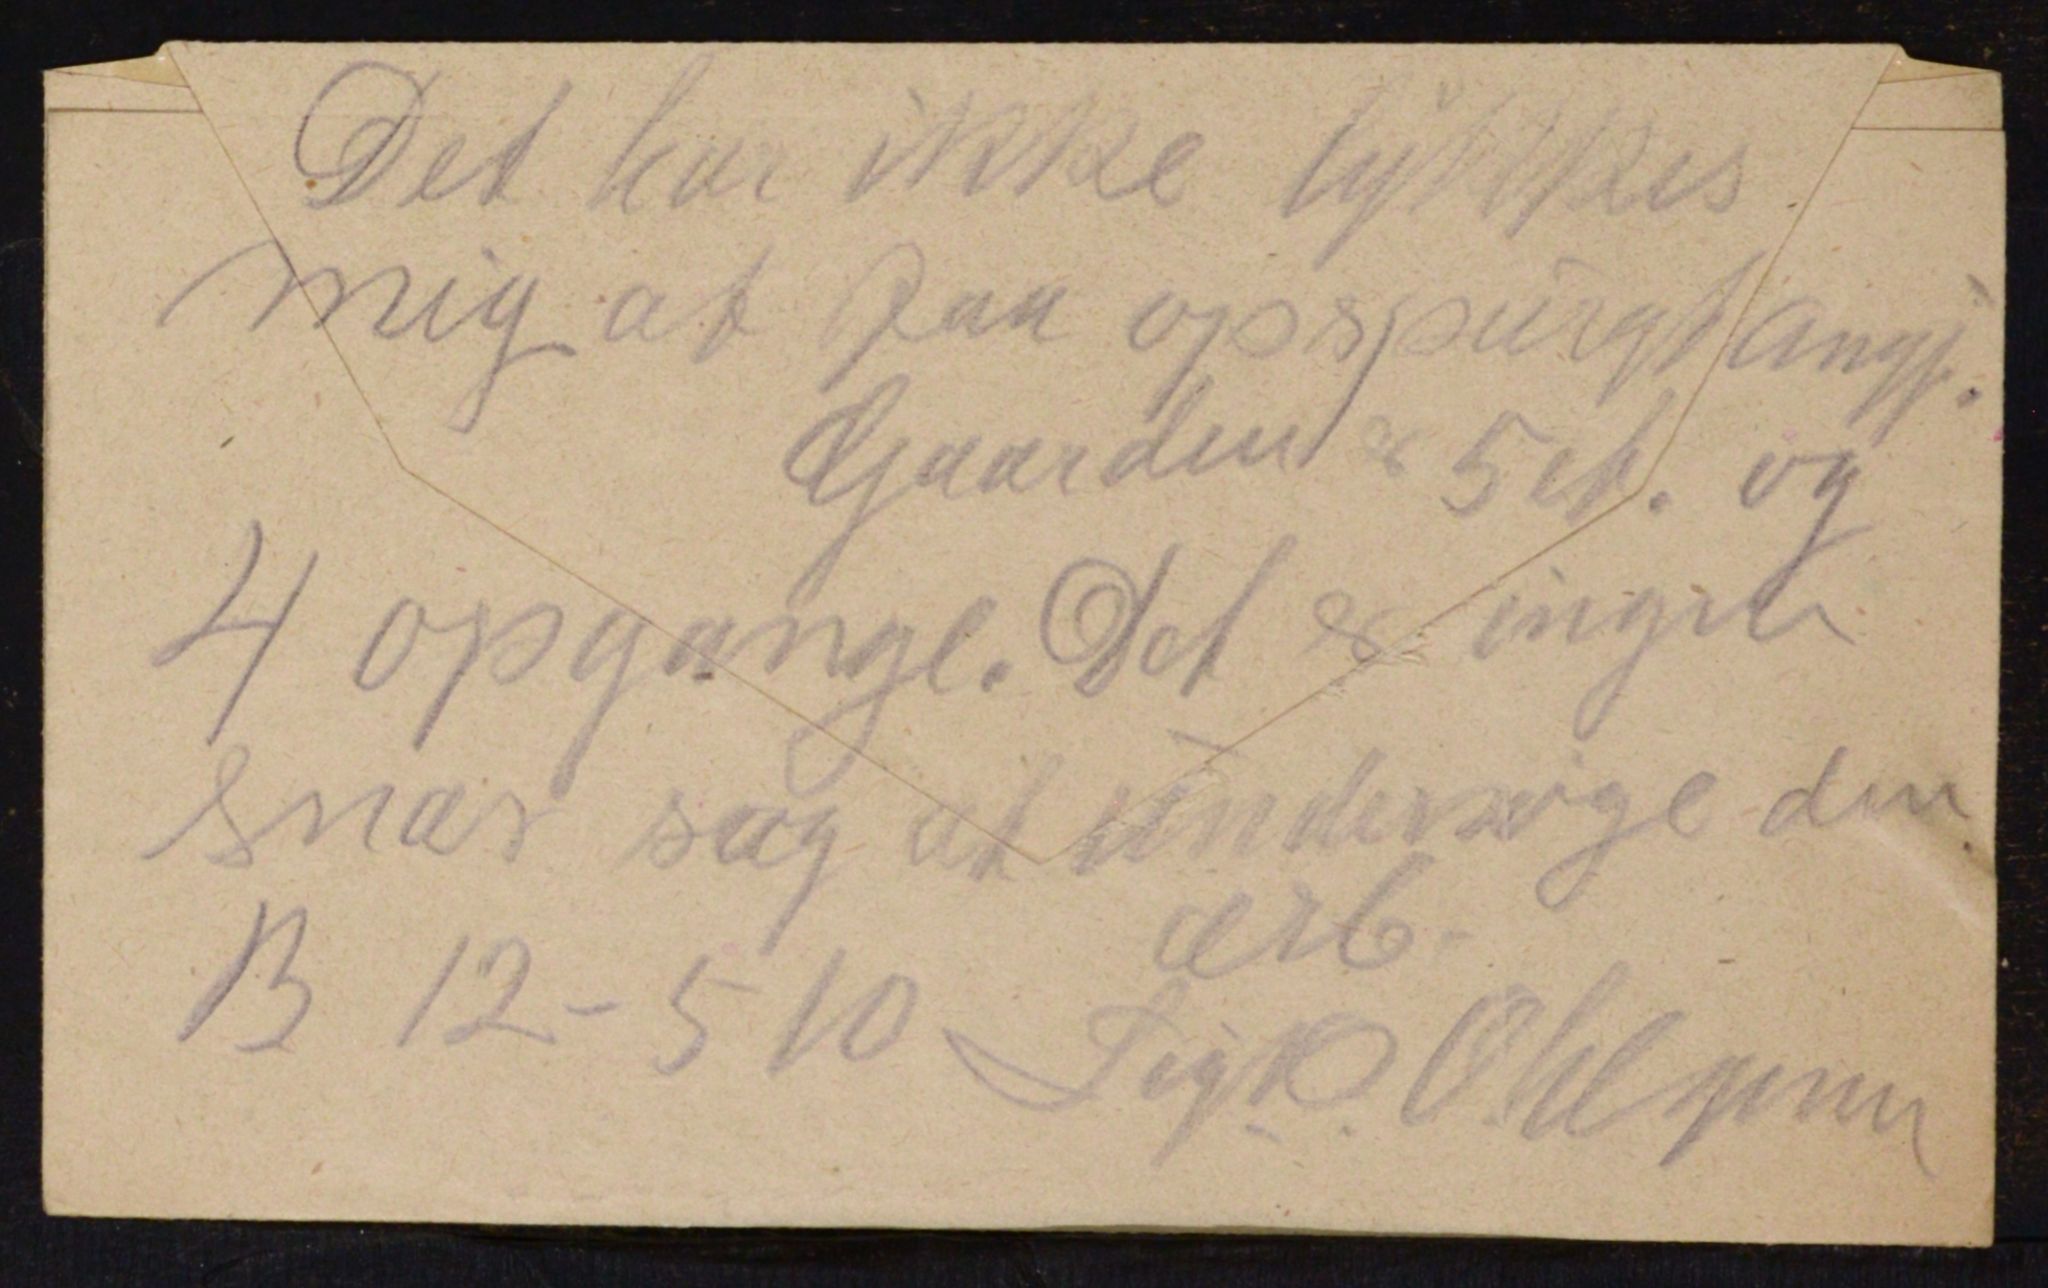 Det har ikke lykkes
mig at faa opspurgt angj.
Gaarden er 5 et. og
4 opgange. Det er ingen
snar sag at undersøge den.
ærb.
B 12-5 10